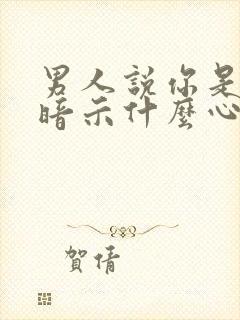 男人說你是
暗示什麼心
賀倩